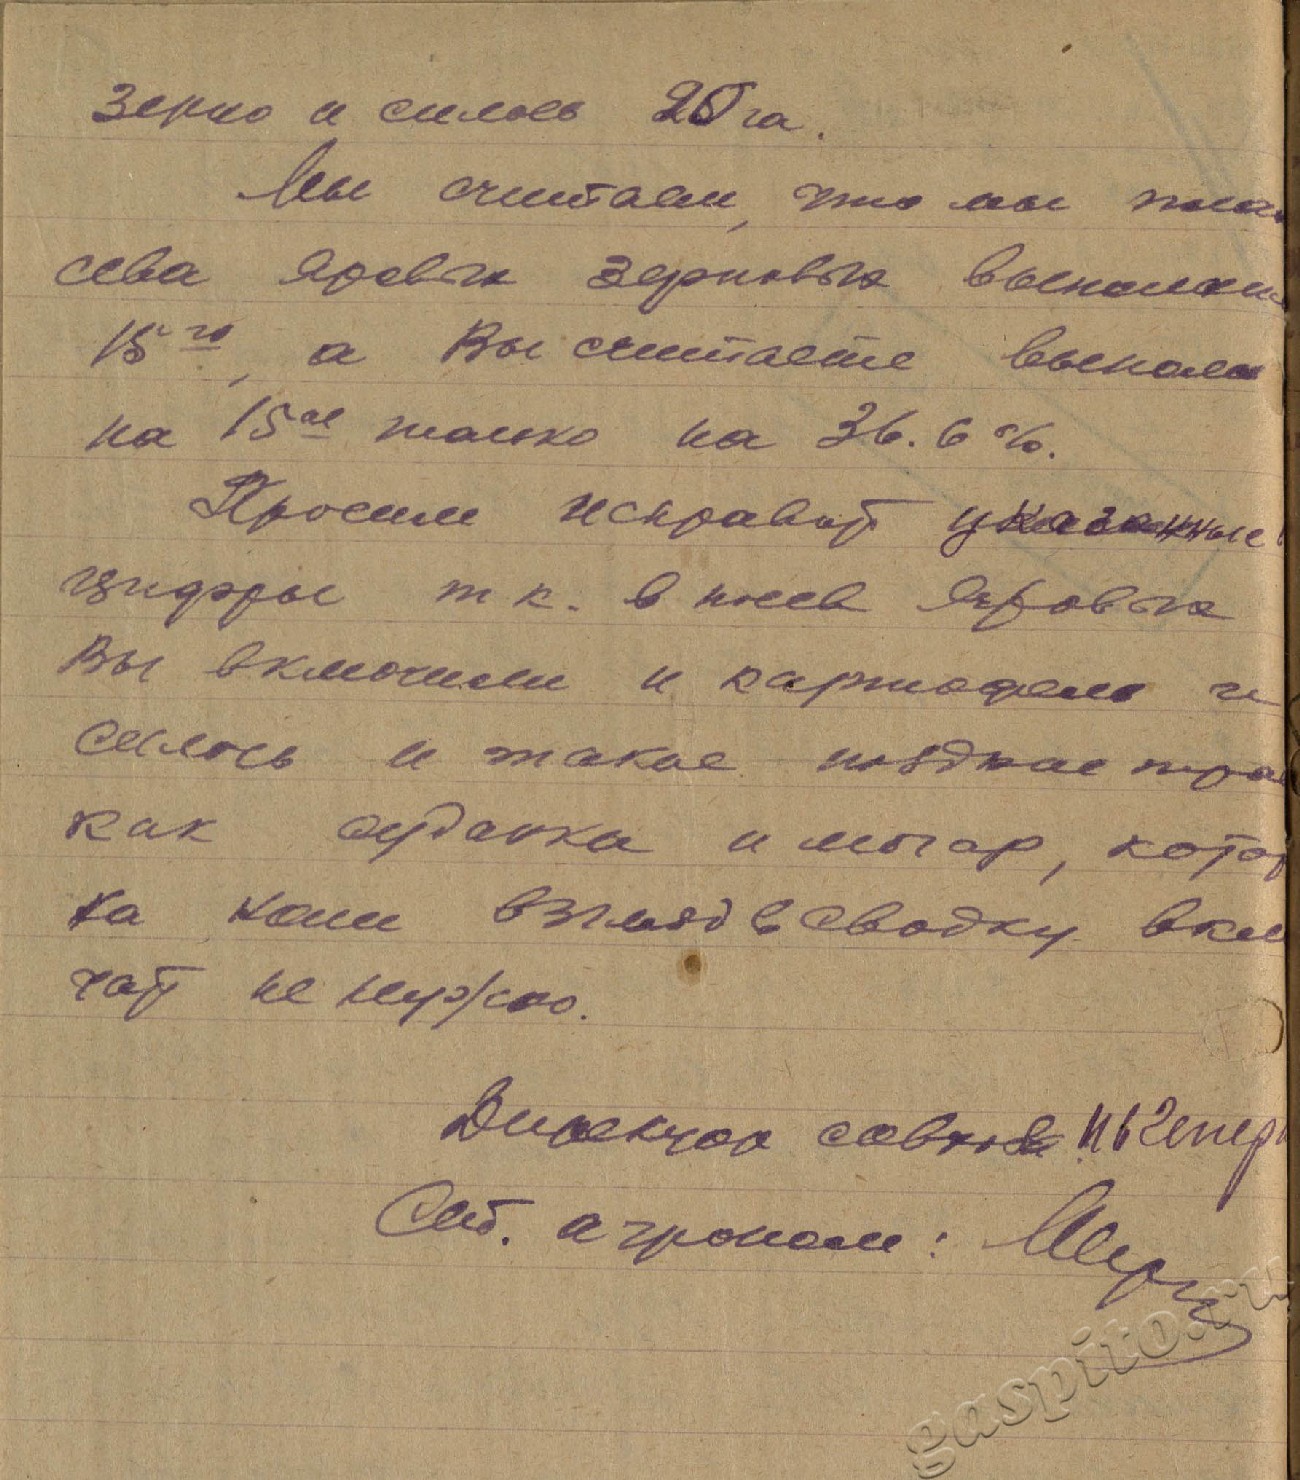 зерно и силось 20 га.
Мы считаем, что мы план
сева яровых зерновых выполнили
15го, а Вы считаете выполн
на 15ое толко на 36.6%.
Просим исправит указанные
цифры т к. в посев яровых
Вы включили и картофель и
силось и такие поздние трав
как суданка и могар, котор
на наш взгляд в сводку вклю
чат не нужно.
Директор совхоза
Ст. агроном:
gaspito.ru